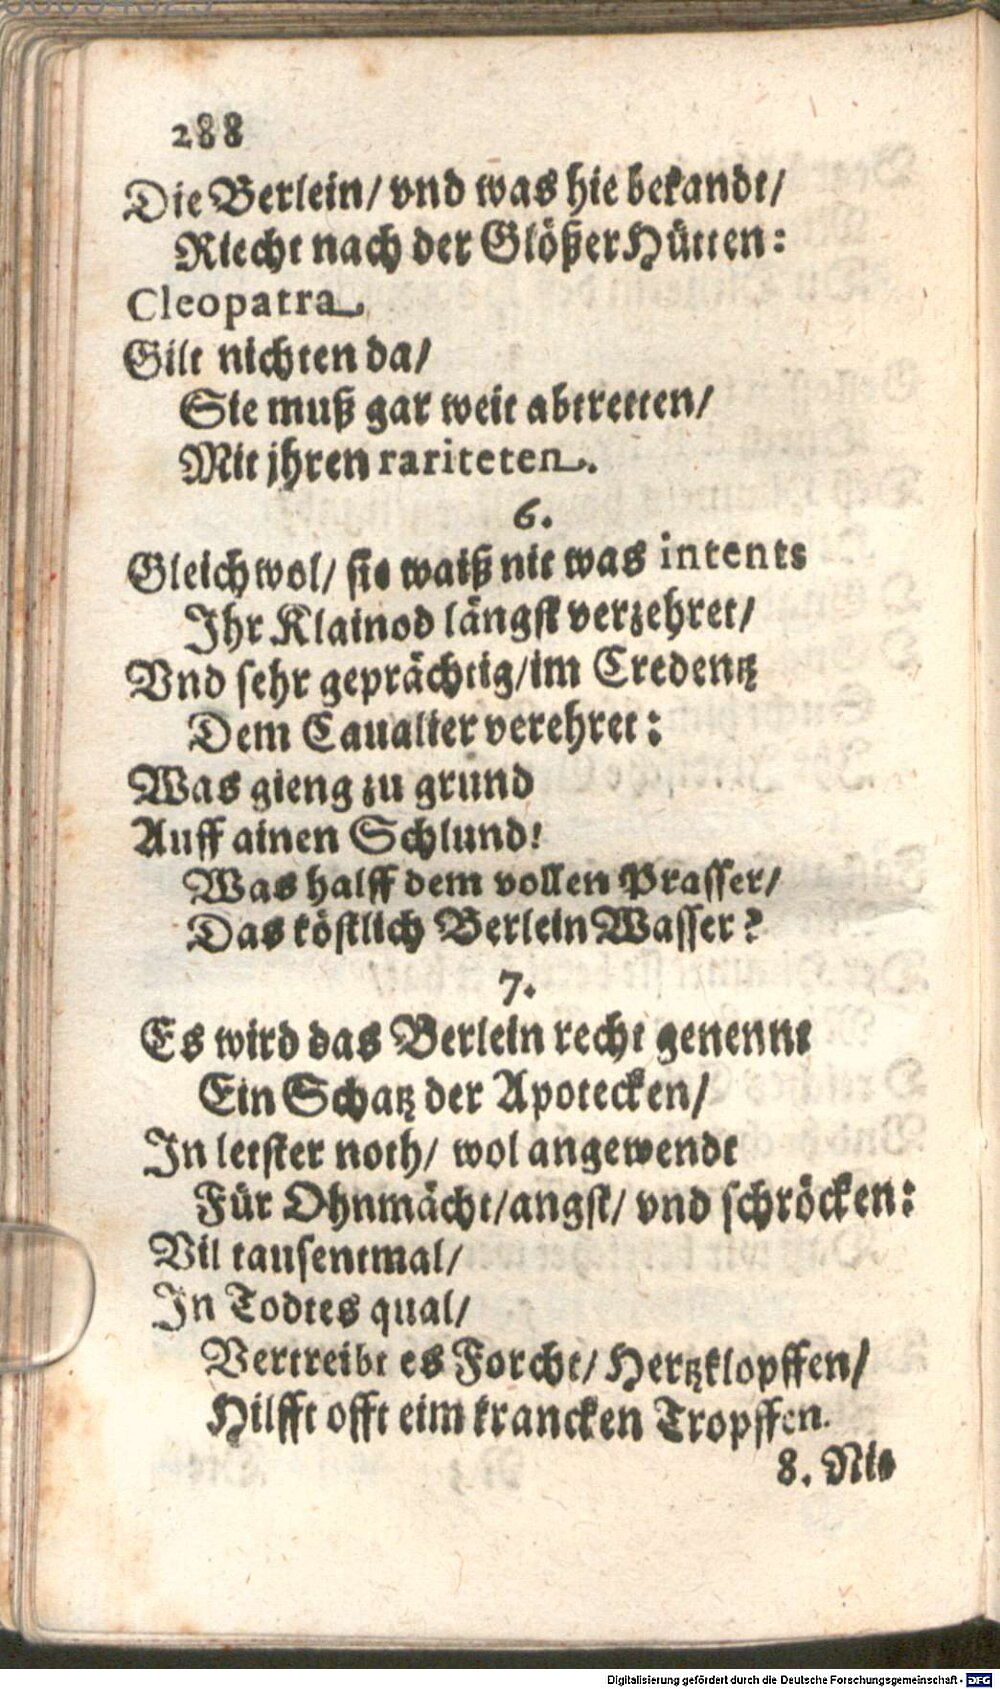 288
Die Berlein/ vnd was hie bekandt/
Riecht nach der Glößer Hütten:
Cleopatra
Gilt nichten da/
Sie muß gar weit abtretten/
Mit jhren rariteten.
6.
Gleichwol/ sie waiß nit was intents
Ihr Klainod längst verzehret/
Vnd sehr geprächtig/ im Credentz
Dem Caualier verehret:
Was gieng zu grund
Auff ainen Schlund!
Was halff dem vollen Prasser/
Das köstlich Berlein Wasser?
7.
Es wird das Berlein recht genennt
Ein Schatz der Apotecken/
In letster noth/ wol angewendt
Für Ohnmächt/ angst/ vnd schröcken:
Vil tausentmal/
In Todtes qual/
Vertreibt es Forcht/ Hertzklopffen/
Hilfft offt eim krancken Tropffen.
8. Nie
Digitalisierung gefördert durch die Deutsche Forschungsgemeinschaft - DFG